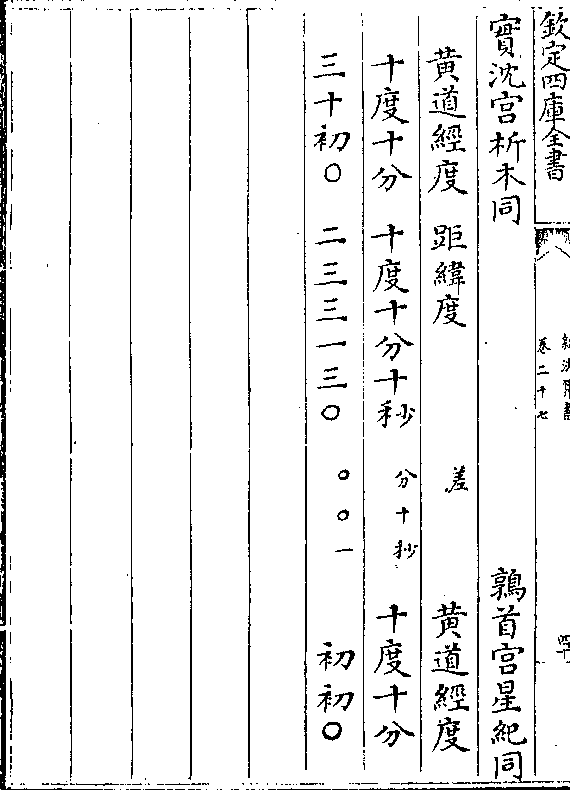 欽定四庫全書
新法算書
卷二十七
實沈宮析木同　鶉首宮星紀同
黃道經度　距緯度　差　黃道經度
十度十分　十度十分十秒　分十秒　十度十分
三十初〇　二三三一三〇　〇〇一　初初〇